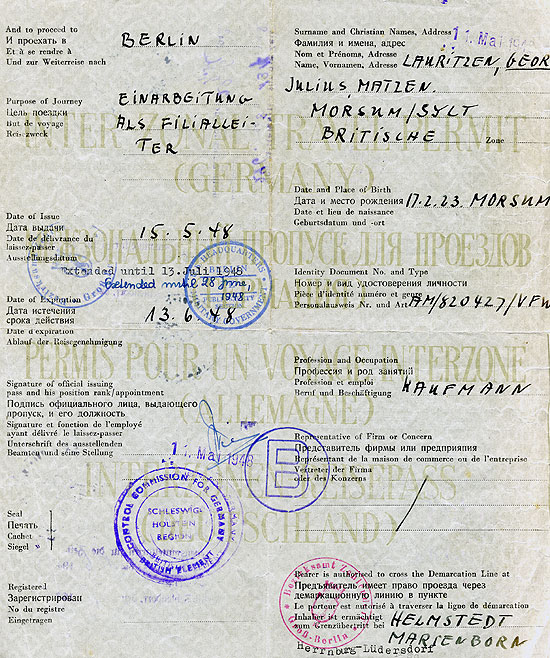 And to proceed to
И проехать в
Et à se rendre à
Und zur Weiterreise nach
BERLIN
Purpose of Journey
Цель поездки
But de voyage
Reisezweck
EINARBEITUNG
ALS FILIALLEI-
TER
Date of Issue
Дата выдачи
Date de délivrance du
laissez-passer
Ausstellungsdatum
15.5.48
Extended until 13. Juli 1948
Extended until 28 June,
1948
Date of Expiration
Дата истечения
срока действия
Date d'expiration
Ablauf der Reisegenehmigung
13.6.48
Signature of official issuing
pass and his position rank/appointment
Подпись официального лица, выдающего
пропуск, и его должность
Signature et fonction de l'employé
ayant délivré le laissez-passer
Unterschrift des ausstellenden
Beamten und seine Stellung
11. Mai 1948
B
Seal
Печать
Cachet
Siegel
CONTROL COMMISSION FOR GERMANY
BRITISH ELEMENT
SCHLESWIG
HOLSTEIN
REGION
Registered
Зарегистрирован
No du registre
Eingetragen
Surname and Christian Names, Address
Фамилия и имена, адрес
Nom et Prénoms, Adresse
Name, Vornamen, Adresse
LAURITZEN, GEOR
JULIUS MATZEN.
MORSUM/SYLT
BRITISCHE
Zone
Date and Place of Birth
Дата и место рождения
Date et lieu de naissance
Geburtsdatum und -ort
17.2.23. MORSUM
Identity Document No. and Type
Номер и вид удостоверения личности
Pièce d'identité numéro et genre
Personalausweis Nr. und Art
AM/820427/VFW
Profession and Occupation
Профессия и род занятий
Profession et emploi
Beruf und Beschäftigung
KAUFMANN
Representative of Firm or Concern
Представитель фирмы или предприятия
Représentant de la maison de commerce ou de l'entreprise
Vertreter der Firma
oder des Konzerns
Bearer is authorised to cross the Demarcation Line at
Предъявитель имеет право проезда через
демаркационную линию в пункте
Le porteur est autorisé à traverser la ligne de démarcation
Inhaber ist ermächtigt
zum Grenzübertritt bei
HELMSTEDT
MARIENBORN
Herrnburg-Lüdersdorf
Groß-Berlin